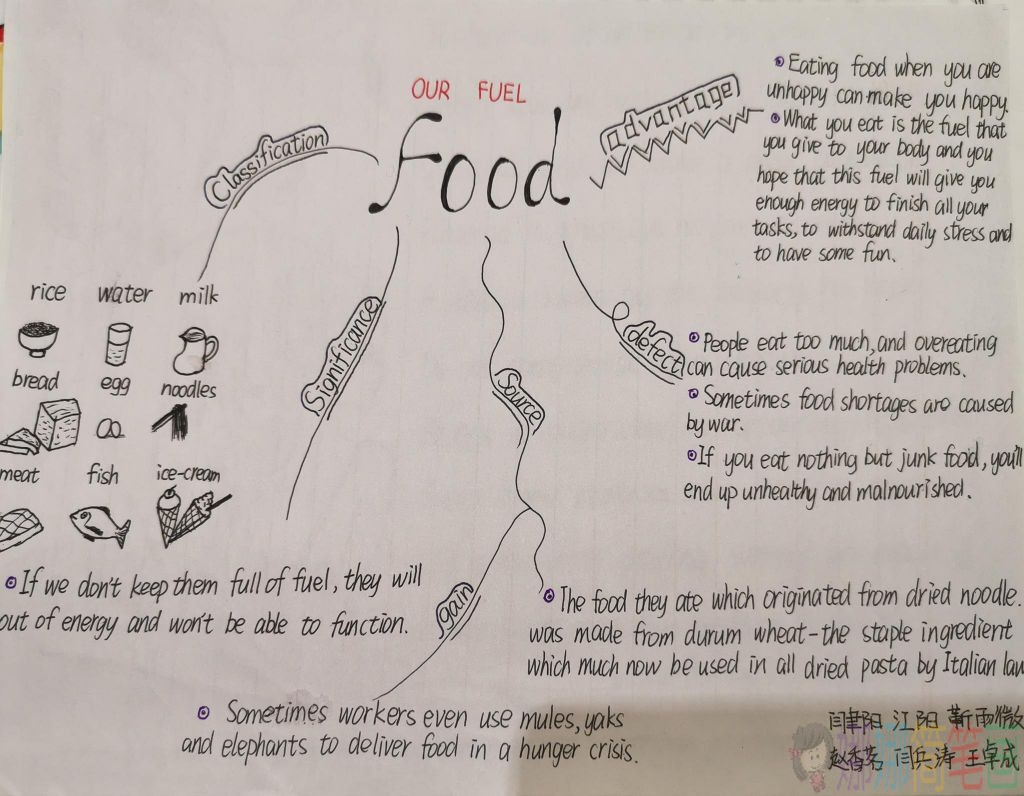 OUR FUEL
food
Classification
advantage
Eating food when you are
unhappy can make you happy.
What you eat is the fuel that
you give to your body and you
hope that this fuel will give you
enough energy to finish all your
tasks, to withstand daily stress and
to have some fun.
rice water milk
bread egg noodles
meat fish ice-cream
Significance
Source
defect
People eat too much, and overeating
can cause serious health problems.
Sometimes food shortages are caused
by war.
If you eat nothing but junk food, you'll
end up unhealthy and malnourished.
If we don't keep them full of fuel, they will
out of energy and won't be able to function.
gain
The food they ate which originated from dried noodle.
was made from durum wheat-the staple ingredient
which much now be used in all dried pasta by Italian law
Sometimes workers even use mules, yaks
and elephants to deliver food in a hunger crisis.
闫聿阳 江阳 靳雨微
赵香芳 闫兵涛 王卓成
简笔画